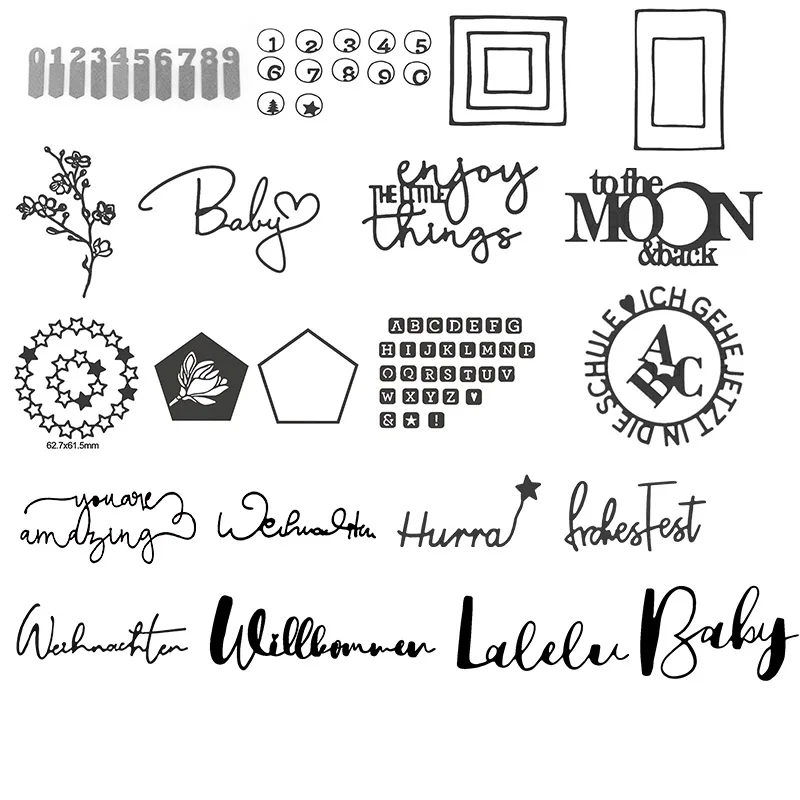 0 1 2 3 4 5 6 7 8 9
1 2 3 4 5
6 7 8 9 0
Baby
enjoy
THE LITTLE
things
to the
MOON
&back
62.7x61.5mm
A B C D E F G
H I J K L M N P
O Q R S T U V
W X Y Z
& !
ICH GEHE JETZT IN DIE SCHULE
ABC
you are
amazing
Weihnachten
Hurra
frohes Fest
Weihnachten
Willkommen
Lalelu
Baby